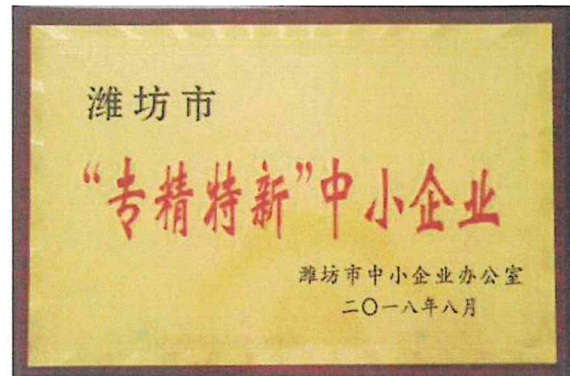 潍坊市
“专精特新”中小企业
潍坊市中小企业办公室
二〇一八年八月